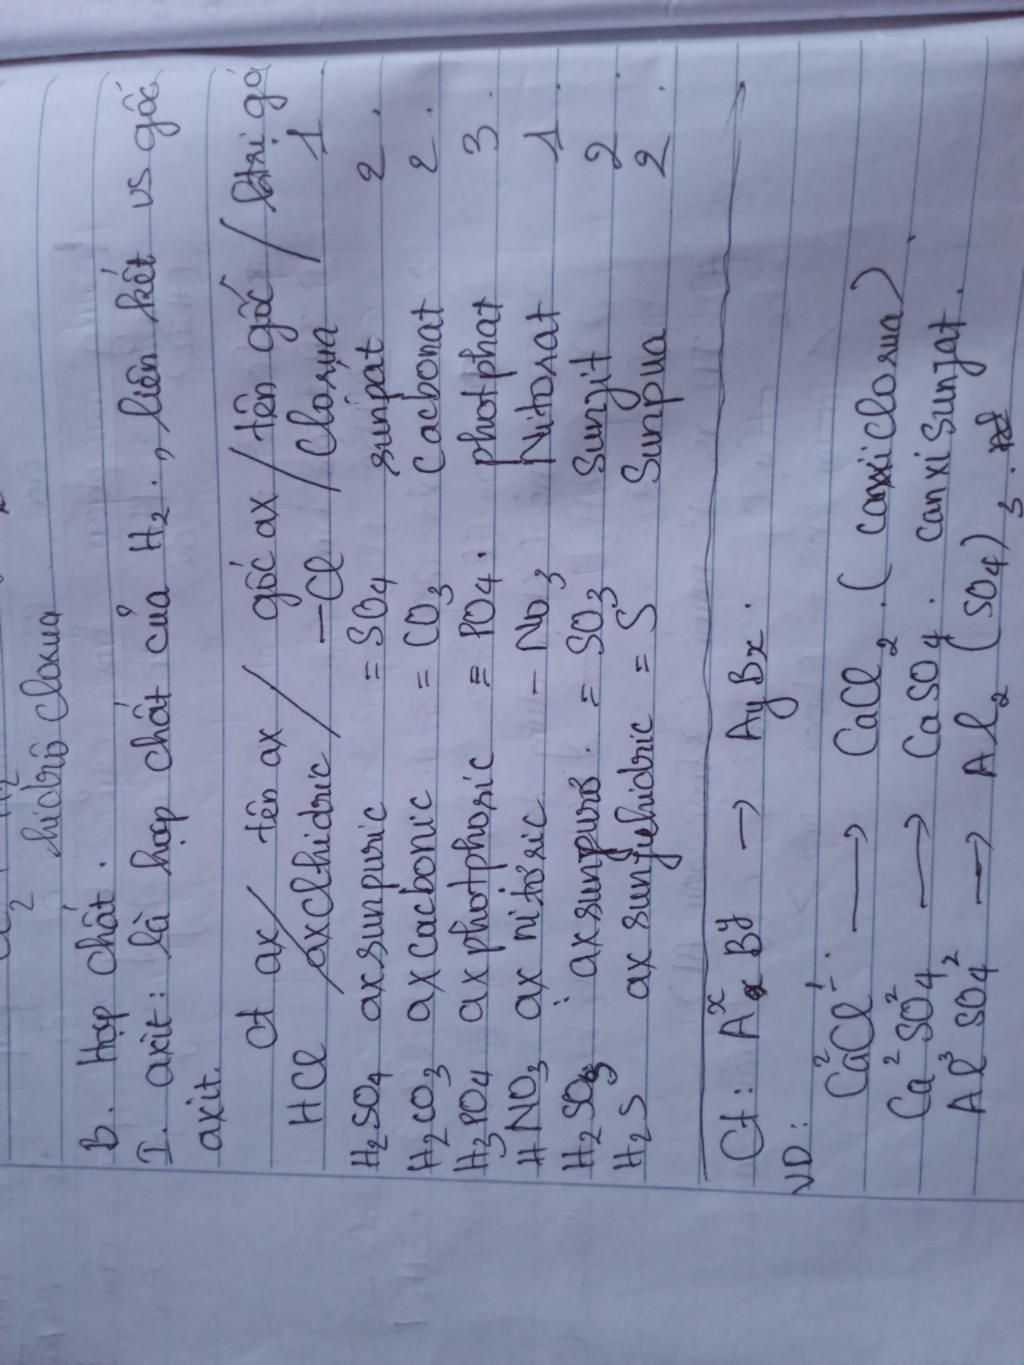 2 hidrô Clorua
B. Hợp chất.
I. axit: là hợp chất của H2, liên kết vs gốc
axit.
Ct ax/ tên ax / gốc ax / tên gốc / htrị gố
HCl / axclohidric / -Cl / Clorua 1
H2SO4 axsunpuric = SO4 sunpat 2
H2CO3 axcacbonic = CO3 Cacbonat 2
H3PO4 axphotphoric = PO4 photphat 3
HNO3 ax nitơric - No3 Nitơrat 1
H2SO3 axsunpurơ = SO3 Sunfit 2
H2S ax sunfuhidric = S Sunpua 2
Ct: Aˣ Bʸ → AyBx.
VD:
Ca²Cl¹ → CaCl2 (canxiclorua)
Ca²SO4² → CaSO4. canxisunfat.
Al³SO4² → Al2(SO4)3.